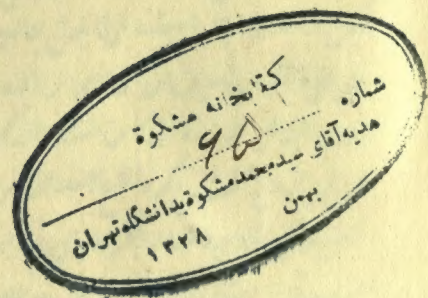 کتابخانه مشکوة
شماره ۶۵
هدیه آقای سید محمد مشکوة بدانشگاه تهران
بهمن
۱۳۲۸